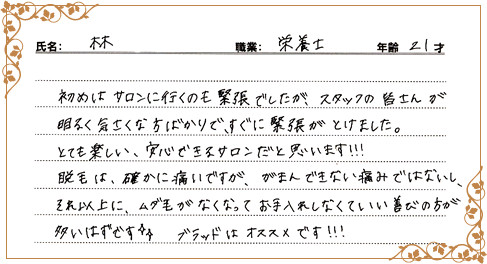 氏名: 林 職業: 栄養士 年齢 21才
初めは サロンに行くのも 緊張でしたが、スタッフの 皆さんが
明るく 気さくな方ばかりで、すぐに 緊張が とけました。
とても楽しい、安心できるサロンだと 思います!!!
脱毛は、確かに痛いですが、がまんできない痛みではないし、
それ以上に、ムダ毛が なくなって お手入れしなくていい 喜びの方が
多いはずです ブラッドは オススメです!!!